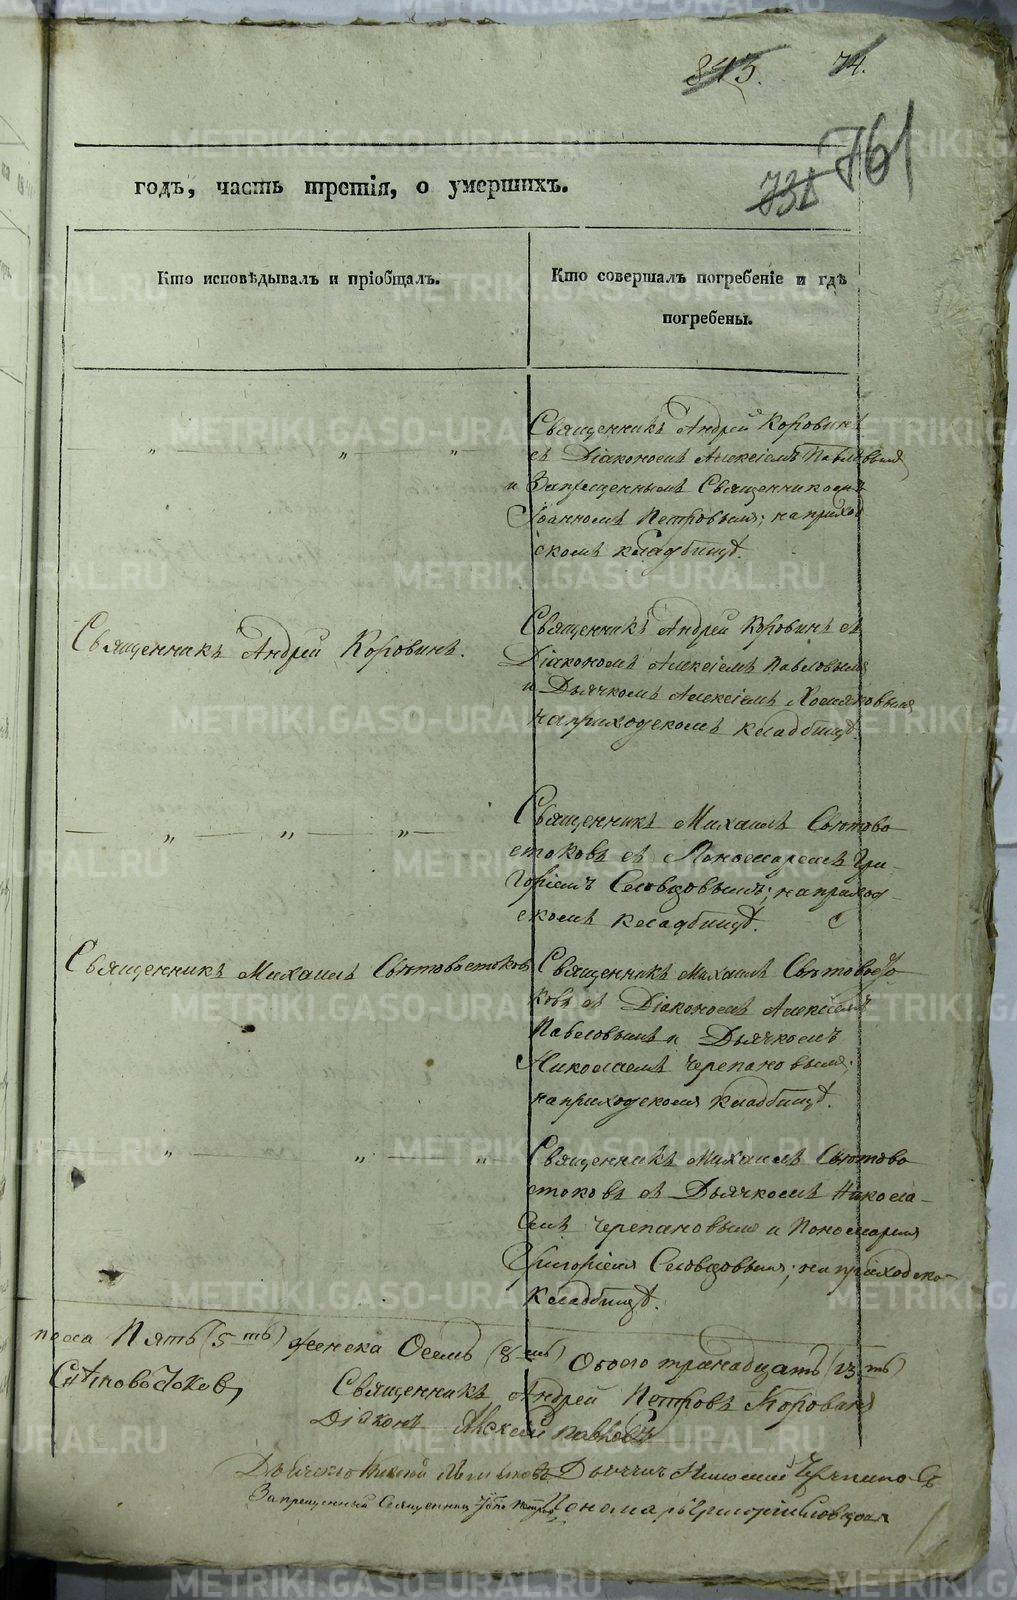 843. 74.
761
731
годъ, часть третія, о умершихъ.
Кто исповѣдывалъ и пріобщалъ.
Кто совершалъ погребеніе и гдѣ
погребены.
Священникъ Андрей Коровинъ
съ Діакономъ Алексіемъ Павловымъ
и Запрещеннымъ Священникомъ
Іоанномъ Петровымъ; на приход
скомъ кладбищѣ.
Священникъ Андрей Коровинъ.
Священникъ Андрей Коровинъ съ
Діакономъ Алексіемъ Павловымъ
и Дьячкомъ Алексіемъ Хомяковымъ
на приходскомъ кладбищѣ.
Священникъ Михаилъ Свѣтово
стоковъ съ Пономаремъ Гри-
горіемъ Словцовымъ; на приход-
скомъ кладбищѣ.
Священникъ Михаилъ Свѣтовостоковъ
Священникъ Михаилъ Свѣтовосто
ковъ съ Діакономъ Алексіемъ
Павловымъ и Дьячкомъ
Николаемъ Черепановымъ;
на приходскомъ кладбищѣ.
Священникъ Михаилъ Свѣтово
стоковъ съ Дьячкомъ Никола-
емъ Черепановымъ и Пономаремъ
Григоріемъ Словцовымъ; на приходско
кладбищѣ.
пола Пять (5ть) женска Осемь (8мь) Обоего тринадцать (13ть)
Свѣтовостоковъ,
Священникъ Андрей Петровъ Коровинъ
Діаконъ Алексей Павловъ
Дьячекъ Дьячекъ Николай Черепановъ
Запрещенный Священникъ Пономарь Григорій Словцовъ
METRIKI.GASO-URAL.RU